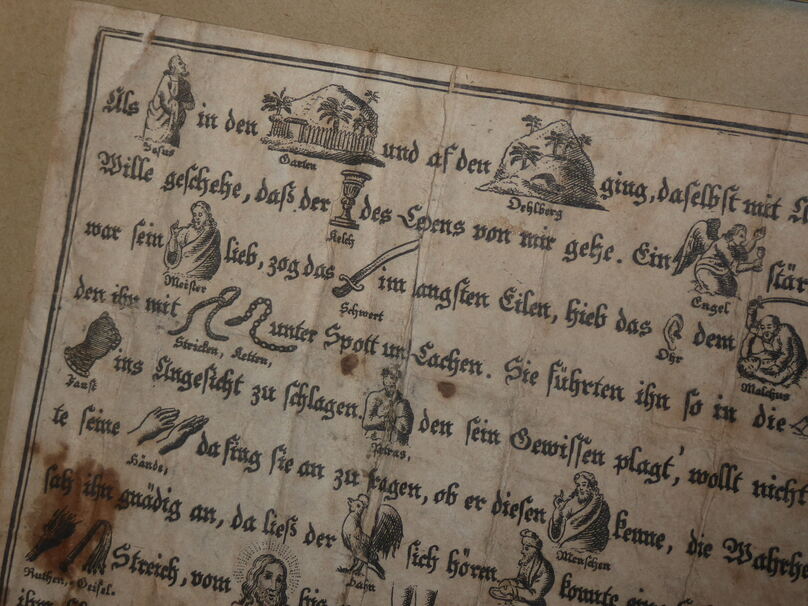 Als Jesus in den Garten und auf den Oehlberg ging, daselbst mit
Wille geschehe, daß der Kelch des Leidens von mir gehe. Ein Engel
war sein Meister lieb, zog das Schwert im langsten Eilen, hieb das Ohr dem Malchus
den ihr mit Stricken, Ketten, unter Spott und Lachen. Sie führten ihn so in die
Faust ins Angesicht zu schlagen. Petrus, den sein Gewissen plagt', wollt nicht
te seine Hände, da fing sie an zu fragen, ob er diesen Menschen kenne, die
sah ihn gnädig an, da ließ der Hahn sich hören konnte
Ruthen, Geisel. Streich, vom